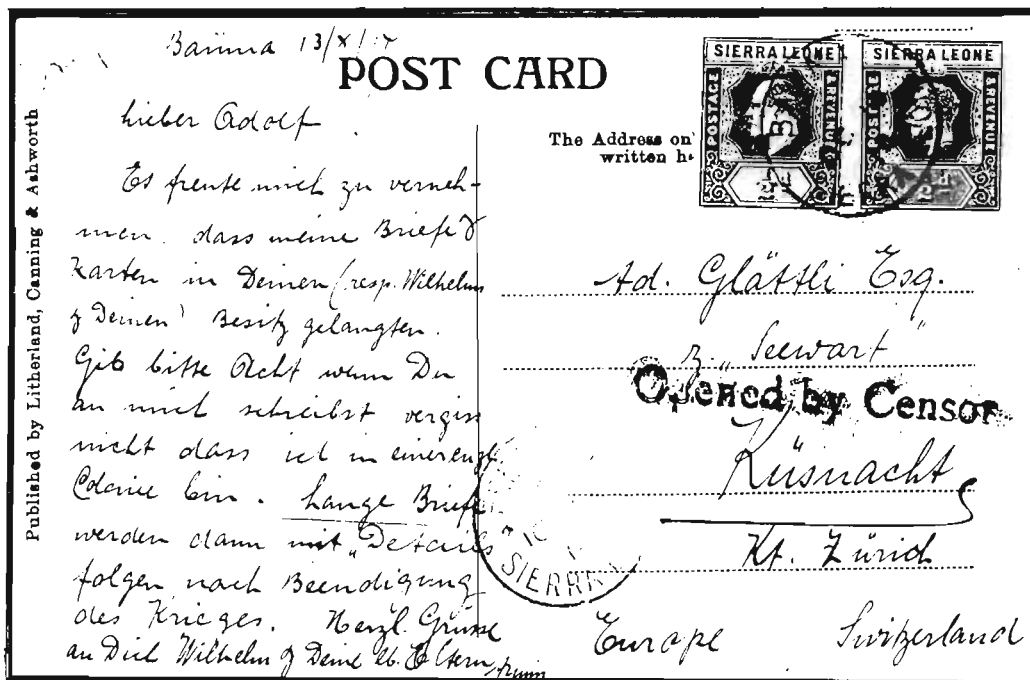 Published by Litherland, Canning & Ashworth
13/X/
POST CARD
Lieber Adolf
Es freute mich zu verneh-
men dass meine Briefe &
Karten in Deinen (resp. Wilhelms
& Deinen) Besitz gelangten.
Gib bitte Acht wenn Du
an mich schreibst vergiss
nicht dass ich in einer engl.
Colonie bin. Lange Briefe
werden dann mit "Details
folgen nach Beendigung
des Krieges. Herzl. Grüsse
an Dich Wilhelm & Deine lb. Eltern,
The Address on
written h
SIERRA LEONE
POSTAGE
& REVENUE
½d
SIERRA LEONE
POSTAGE
& REVENUE
½d
Ad. Glättli Esq.
z. "Seewart"
Opened by Censor
Küsnacht
Kt. Zürich
Europe Switzerland
SIERRA